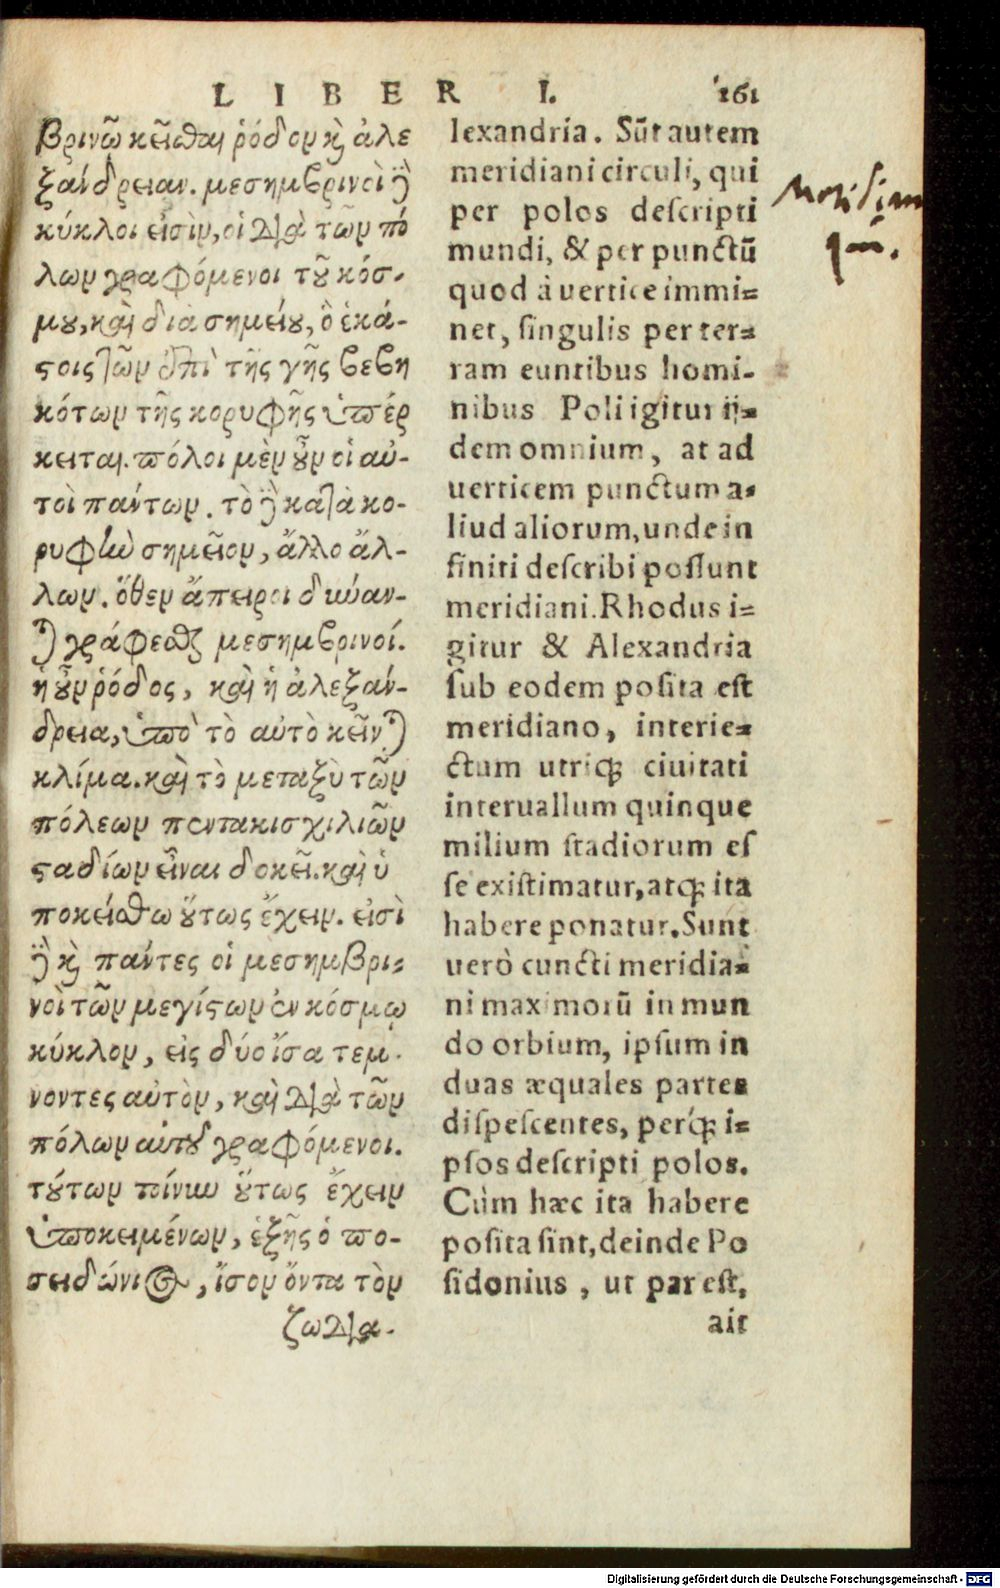 LIBER I. 161
βρινῷ κεῖσθαι ῥόδον καὶ ἀλε
ξάνδρειαν. μεσημβρινοὶ δὲ
κύκλοι εἰσὶν, οἱ διὰ τῶν πό
λων γραφόμενοι τοῦ κόσ-
μου, καὶ διὰ σημείου, ὃ ἑκά-
στοις τῶν ἐπὶ τῆς γῆς βεβη
κότων τῆς κορυφῆς ὑπέρ
κειται. πόλοι μὲν οὖν οἱ αὐ-
τοὶ πάντων. τὸ δὲ κατὰ κο-
ρυφὴν σημεῖον, ἄλλο ἄλ-
λων. ὅθεν ἄπειροι δύναν-
ται γράφεσθαι μεσημβρινοί.
ἡ οὖν ῥόδος, καὶ ἡ ἀλεξάν-
δρεια, ὑπὸ τὸ αὐτὸ κεῖνται
κλίμα. καὶ τὸ μεταξὺ τῶν
πόλεων πεντακισχιλίων
σταδίων εἶναι δοκεῖ. καὶ ὑ
ποκείσθω οὕτως ἔχειν. εἰσὶ
δὲ καὶ πάντες οἱ μεσημβρι-
νοὶ τῶν μεγίστων ἐν κόσμῳ
κύκλον, εἰς δύο ἴσα τεμ-
νοντες αὐτὸν, καὶ διὰ τῶν
πόλων αὐτοῦ γραφόμενοι.
τούτων τοίνυν οὕτως ἔχειν
ὑποκειμένων, ἑξῆς ὁ πο-
σειδώνιος, ἴσον ὄντα τὸν
ζωδια-
lexandria. Sūt autem
meridiani circuli, qui
per polos descripti
mundi, & per punctū
quod à uertice immi-
net, singulis per ter-
ram euntibus homi-
nibus Poli igitur ij-
dem omnium, at ad
uerticem punctum a-
liud aliorum, unde in
finiti describi possunt
meridiani. Rhodus i-
gitur & Alexandria
sub eodem posita est
meridiano, interie-
ctum utriq; ciuitati
interuallum quinque
milium stadiorum es
se existimatur, atq; ita
habere ponatur. Sunt
uerò cuncti meridia-
ni maximorū in mun
do orbium, ipsum in
duas æquales partes
dispescentes, perq́; i-
psos descripti polos.
Cùm hæc ita habere
posita sint, deinde Po
sidonius, ut par est,
ait
Digitalisierung gefördert durch die Deutsche Forschungsgemeinschaft - DFG